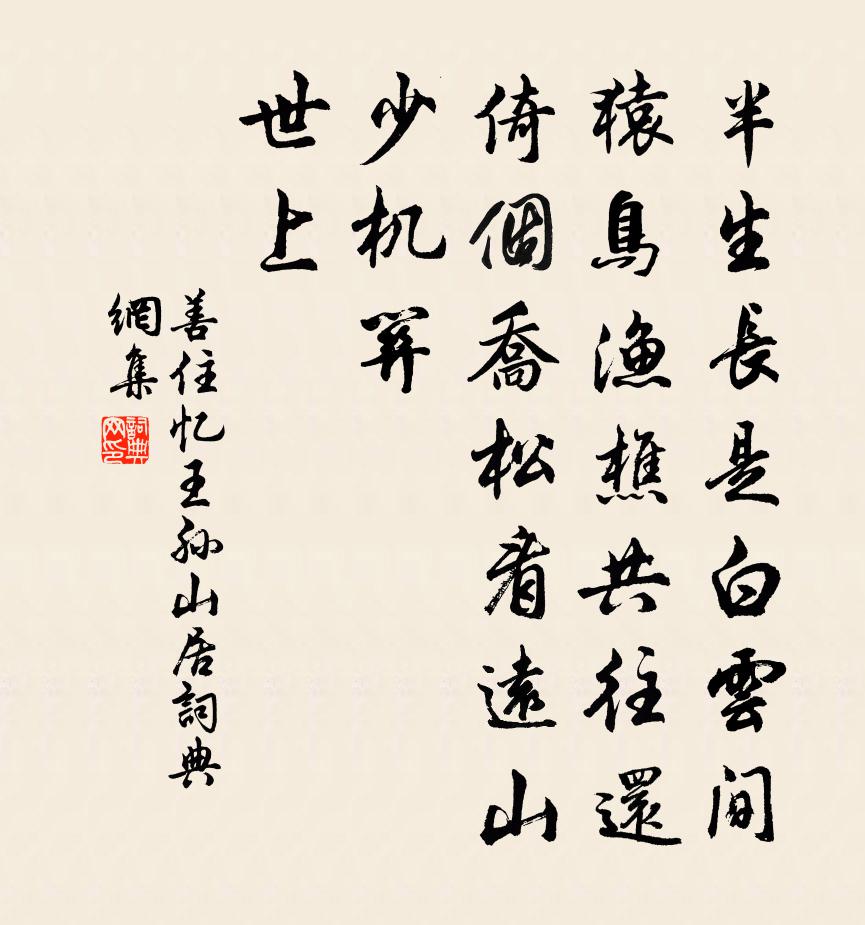 半生長是白雲间
猿鳥漁樵共往還
倚個喬松看遠山
少机筭
世上
善住忆王孙山居詞典
網集
詞典
网印